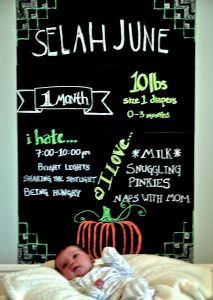 SELAH JUNE
1 MONTH
10 lbs
size 1 diapers
0-3 months
i hate...
7:00-10:00pm
BRIGHT LIGHTS
SHARING THE SPOTLIGHT
BEING HUNGRY
i Love...
*MILK*
SNUGGLING
PINKIES
NAPS WITH MOM